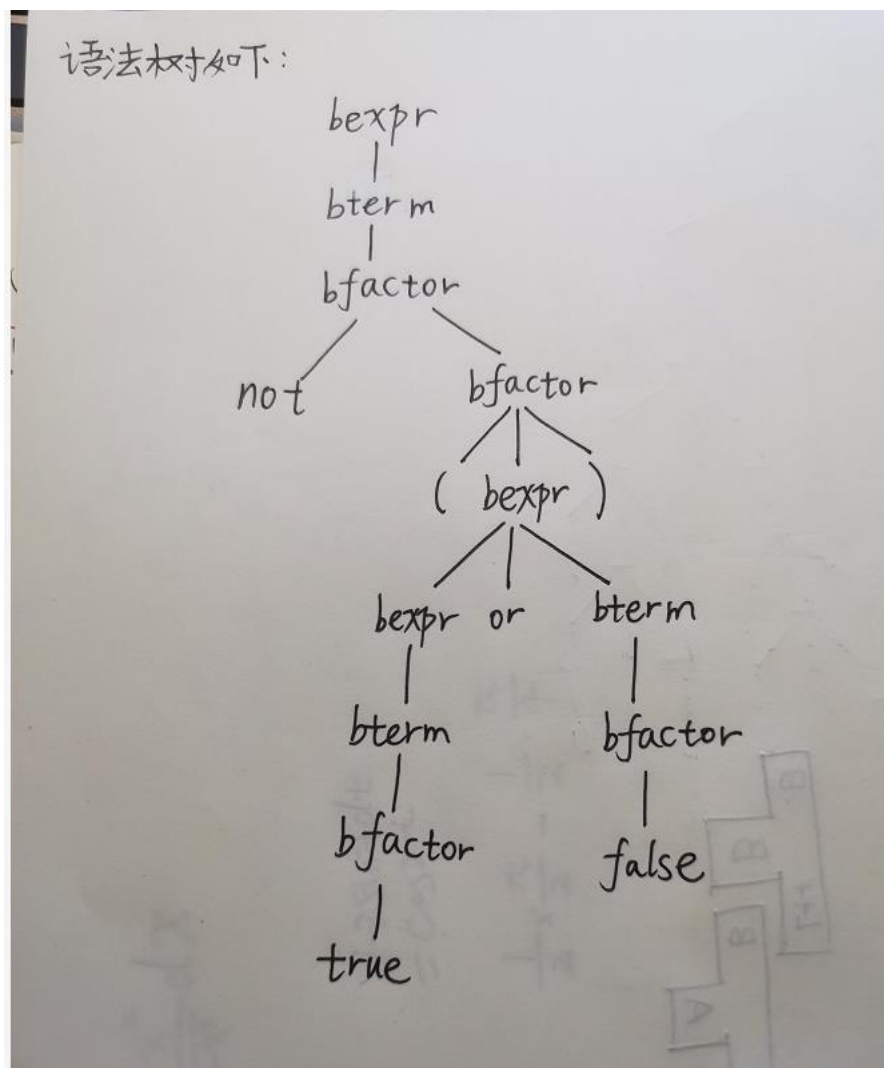 语法树如下:
bexpr
bterm
bfactor
not bfactor
( bexpr )
bexpr or bterm
bterm bfactor
bfactor false
true